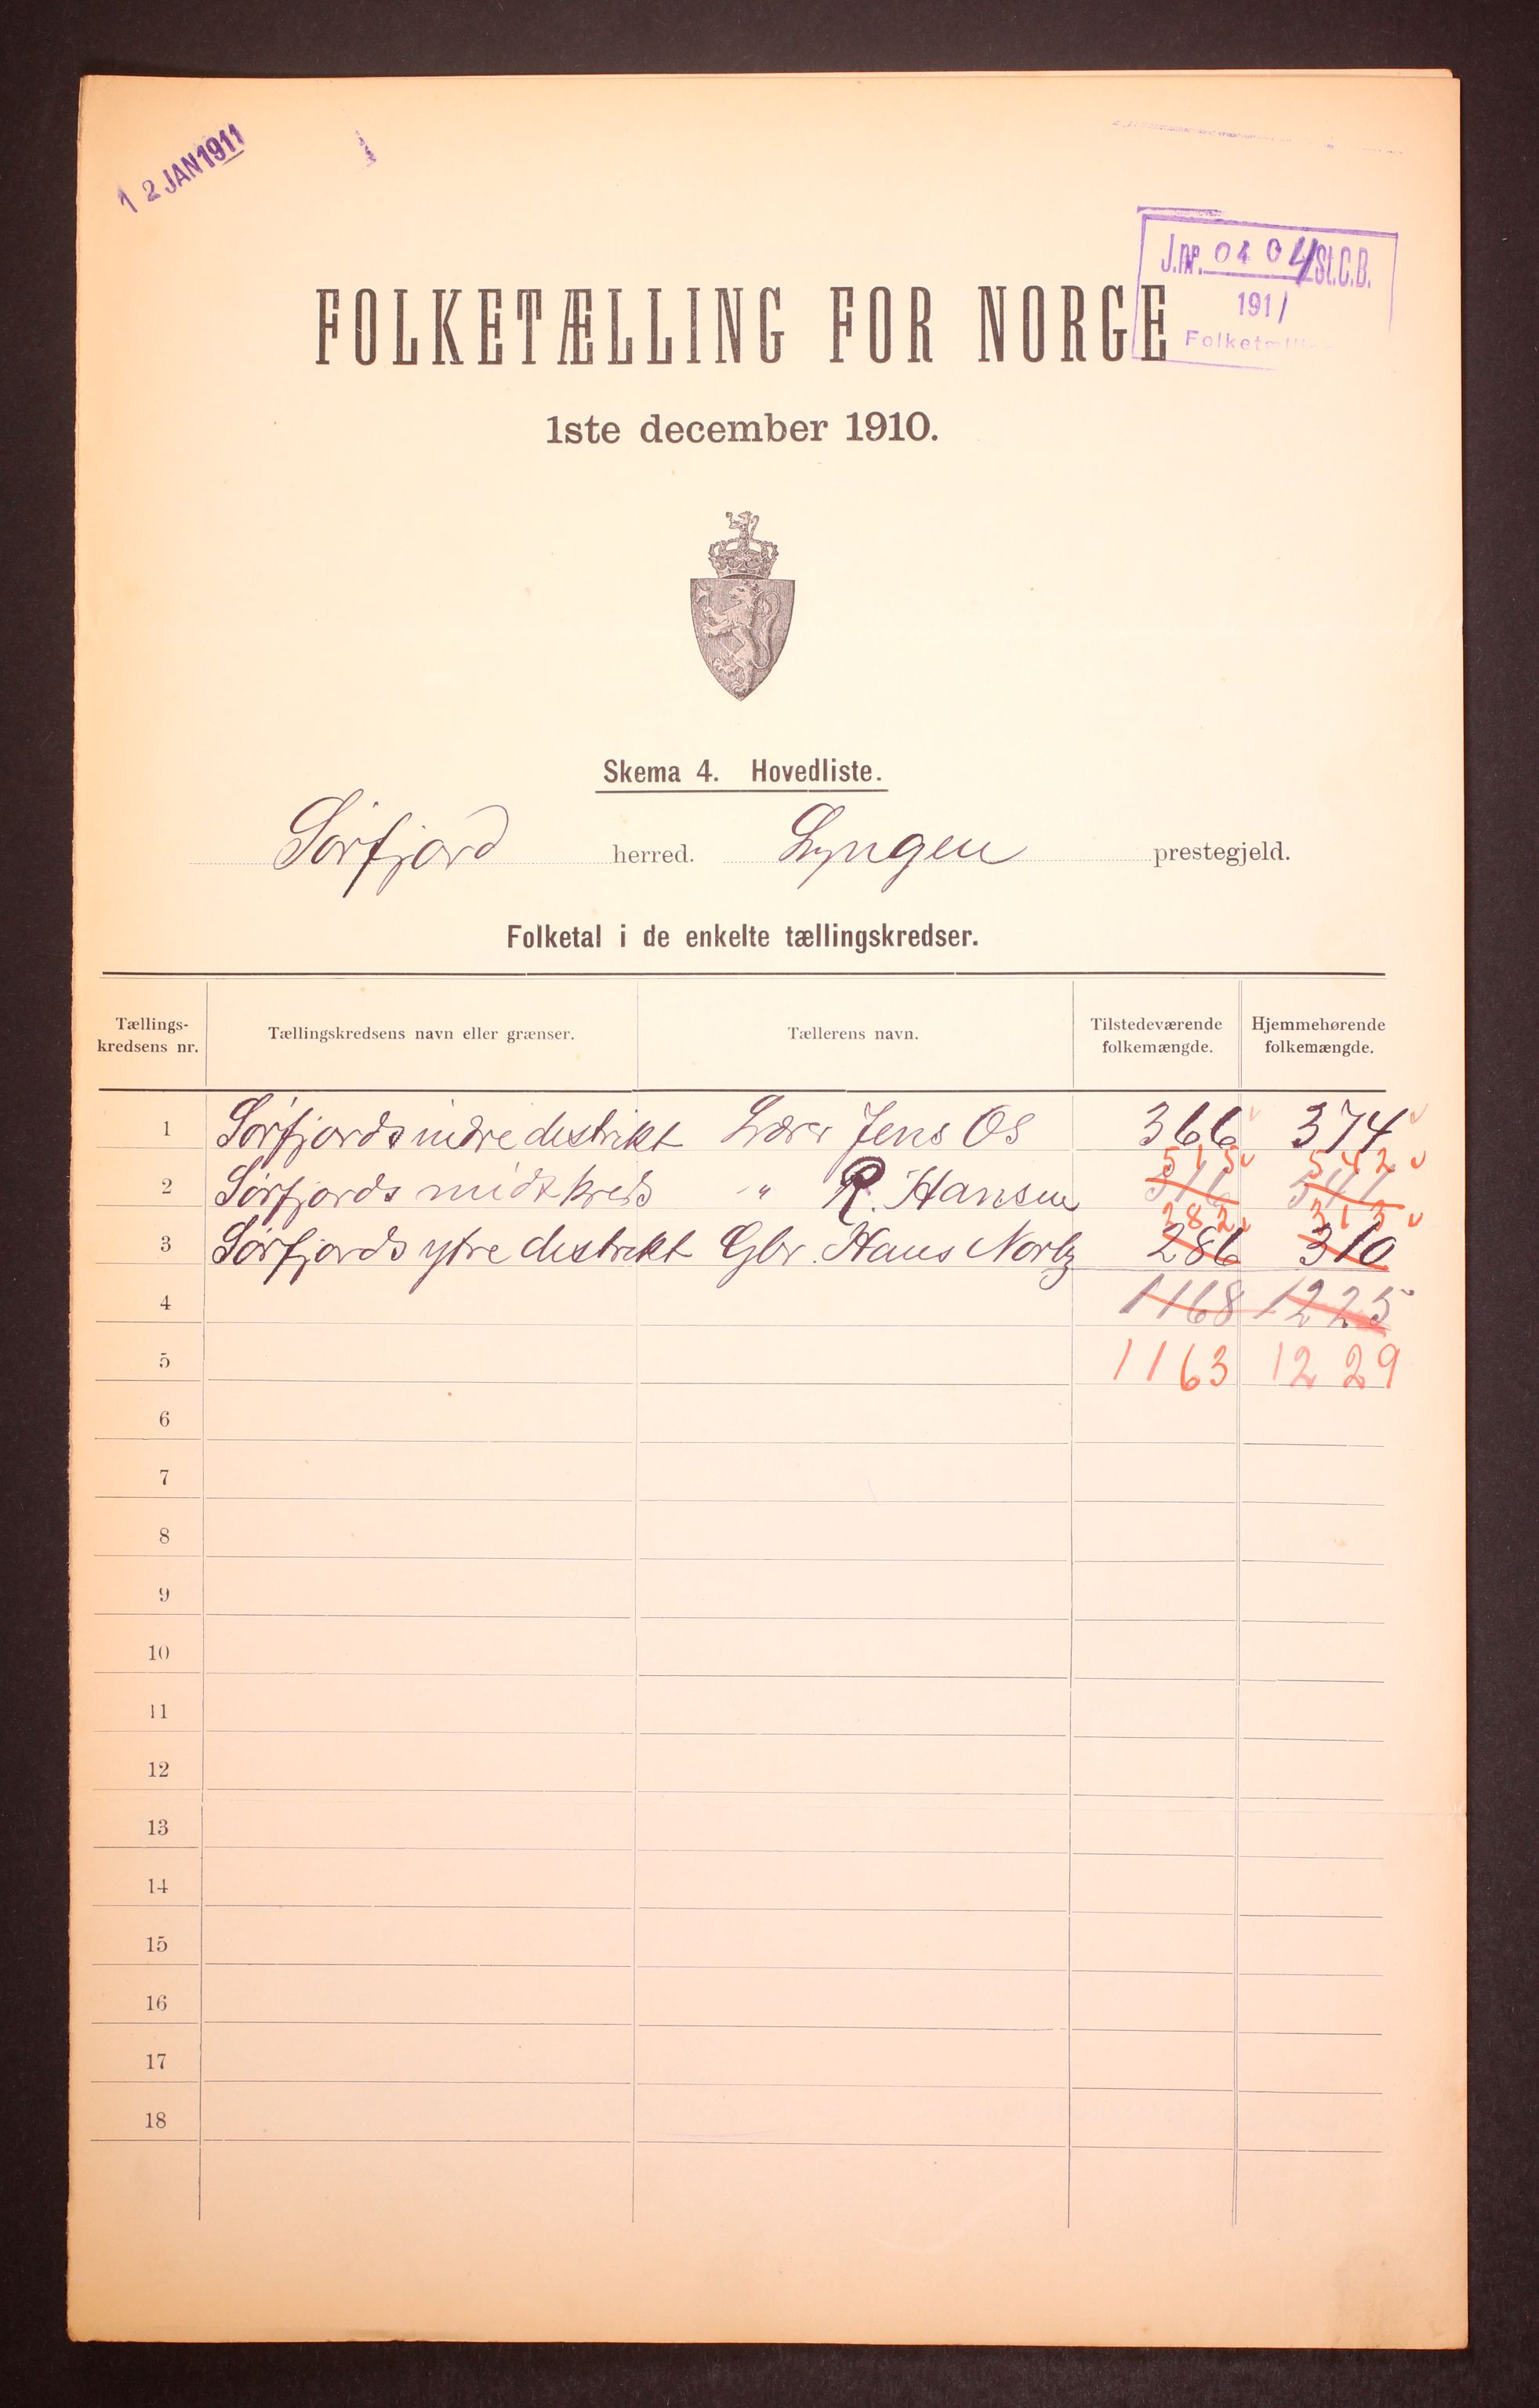 12 JAN 1911
J.nr. 0404 St.C.B.
1911
Folketælling
FOLKETÆLLING FOR NORGE
1ste december 1910.
Skema 4. Hovedliste.
Sørfjord herred. Lyngen prestegjeld.
Folketal i de enkelte tællingskredser.
Tællings-kredsens nr. Tællingskredsens navn eller grænser. Tællerens navn. Tilstedeværende folkemængde. Hjemmehørende folkemængde.
1 Sørfjords indre destrikt Lærer Jens Os 366 374
515 542
2 Sørfjords midtkreds " R. Hansen 516 541
282 313
3 Sørfjords ytre destrikt Gbr. Hans Norby 286 310
4 1168 1225
5 1163 1229
6
7
8
9
10
11
12
13
14
15
16
17
18